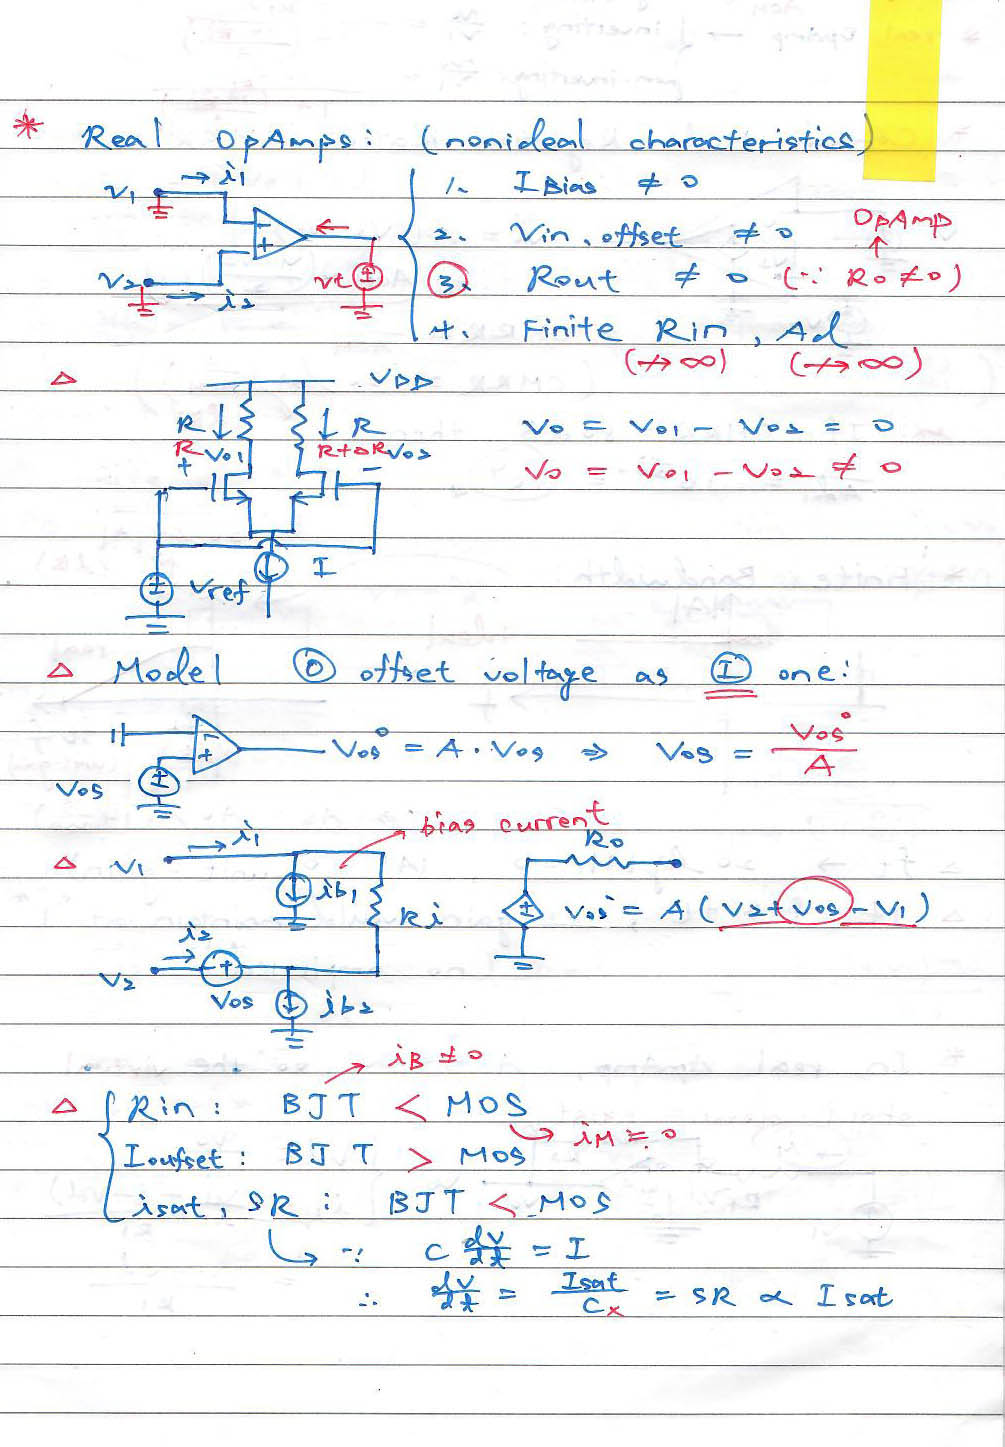 * Real OpAmps: (nonideal characteristics)
V1 → i1
1. I Bias ≠ 0
2. Vin, offset ≠ 0
OpAmp
V2 → i2
vt
3. Rout ≠ 0 (∵ Ro ≠ 0)
4. Finite Rin, Ad
(↛ ∞) (↛ ∞)
△ VDD
R ↓ ↓ R
R Vo1 R+ΔR Vo2
+ −
Vo = Vo1 − Vo2 = 0
Vo = Vo1 − Vo2 ≠ 0
Vref I
△ Model Ⓞ offset voltage as Ⓘ one:
Vos
Vos° = A · Vos ⇒ Vos = Vos° / A
bias current
△ V1 → i1
ib1 Ri
Ro
Vos° = A (V2 + Vos − V1)
V2 → i2
Vos ib2
iB ≠ 0
△ Rin : BJT < MOS
→ iM ≒ 0
Ioufset : BJT > MOS
isat, SR : BJT < MOS
∵ C dv/dt = I
∴ dv/dt = Isat / Cx = SR ∝ Isat